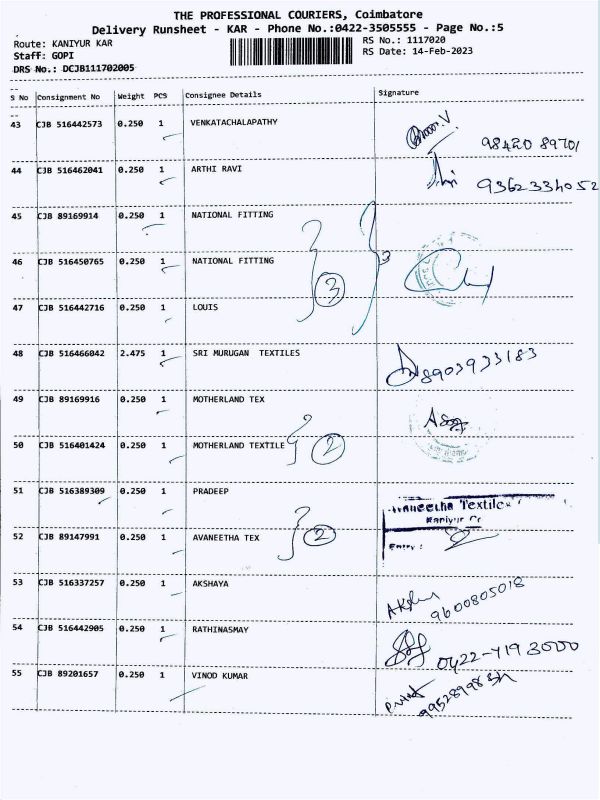 THE PROFESSIONAL COURIERS, Coimbatore
Delivery Runsheet - KAR - Phone No.:0422-3505555 - Page No.:5
Route: KANIYUR KAR RS No.: 1117020
Staff: GOPI RS Date: 14-Feb-2023
DRS No.: DCJB111702005
S No Consignment No Weight PCS Consignee Details Signature
43 CJB 516442573 0.250 1 VENKATACHALAPATHY
98420 89701
44 CJB 516462041 0.250 1 ARTHI RAVI
9362334052
45 CJB 89169914 0.250 1 NATIONAL FITTING
46 CJB 516450765 0.250 1 NATIONAL FITTING 3
3
47 CJB 516442716 0.250 1 LOUIS
48 CJB 516466042 2.475 1 SRI MURUGAN TEXTILES 8903933183
49 CJB 89169916 0.250 1 MOTHERLAND TEX
50 CJB 516401424 0.250 1 MOTHERLAND TEXTILE 2
51 CJB 516389309 0.250 1 PRADEEP
Avaneetha Textiles
52 CJB 89147991 0.250 1 AVANEETHA TEX 2
Entry :
53 CJB 516337257 0.250 1 AKSHAYA
9600805018
54 CJB 516442905 0.250 1 RATHINASMAY
0422-419 3000
55 CJB 89201657 0.250 1 VINOD KUMAR